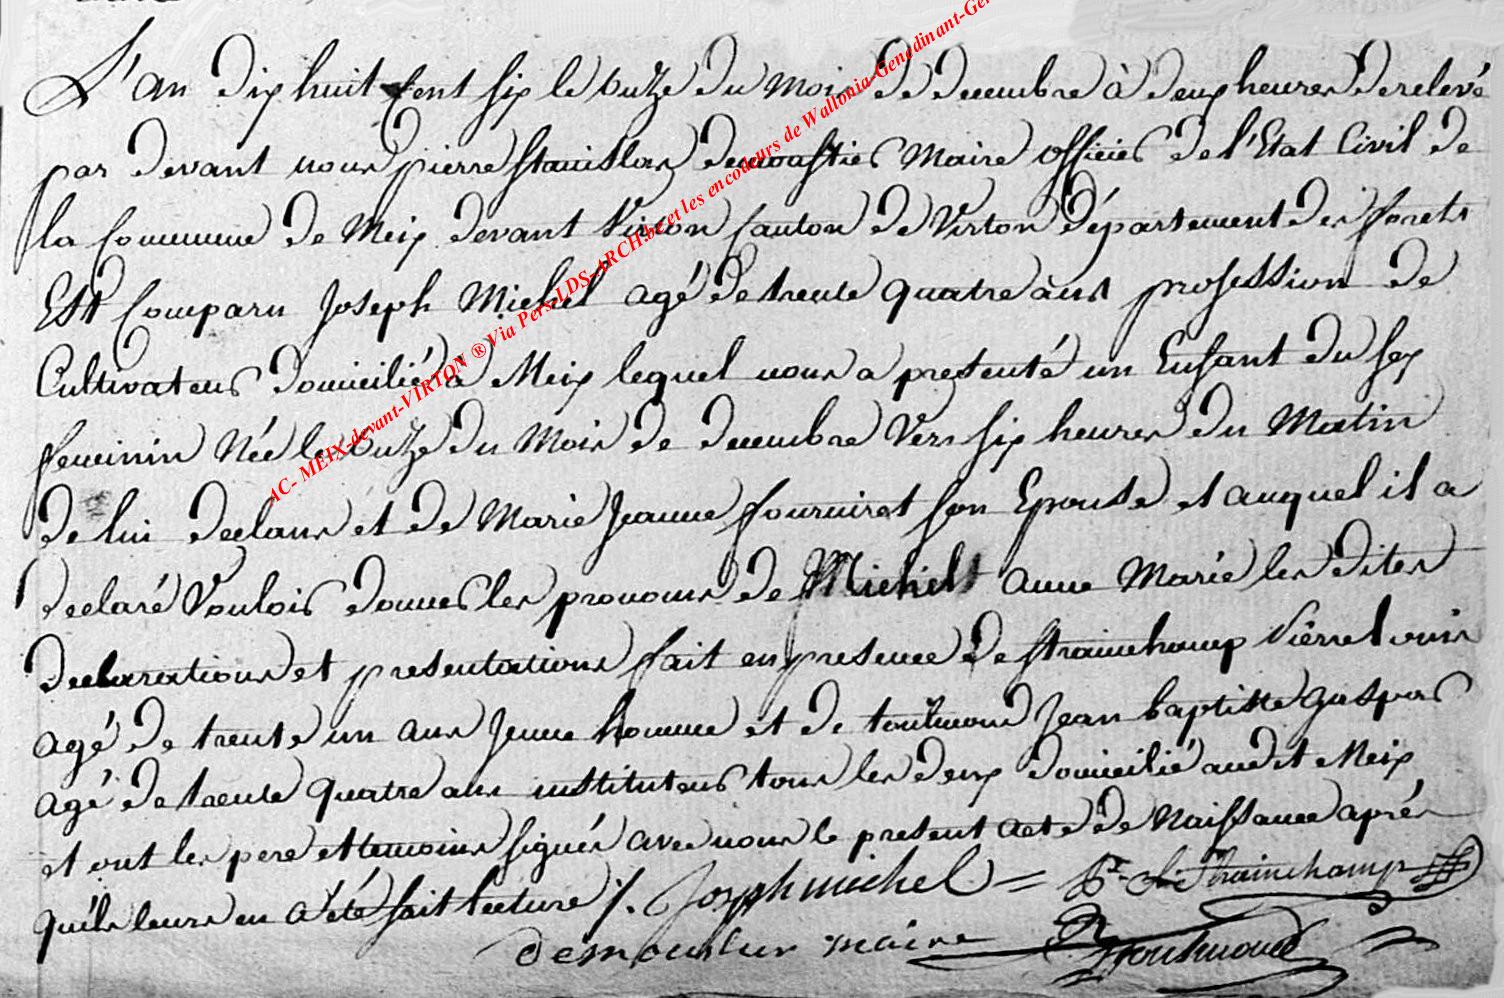 L'an dix huit Cent six le onze du Mois de decembre à deux heures de relevé
par devant nous pierre stanislas demoustier Maire officier de l'Etat Civil de
la Commune de Meix devant Virton Canton de Virton département des forets
Est Comparu Joseph Michel agé de trente quatre ans profession de
Cultivateur domicilié à Meix lequel nous a presenté un Enfant du sex
feminin Née le onze du Mois de decembre Vers six heures du Matin
de lui declans et de Marie Jeanne fourniret son Epouse et auquel il a
declaré Vouloir donner les pronoms de Michel anne Marie les dites
declarations et presentations fait en presence de strainchamp Pierre Louis
agé de trente un ans Jeune homme et de toutmond Jean baptiste Gaspar
agé de trente quatre ans instituteur tous les deux domicilié audit Meix
et ont les pere et temoins signés avec nous le present acte de Naissance aprés
quils leurs en a été fait lecture /. Joseph michel = P. L. Strainchamp
maire Toutmond
AC- MEIX-devant-VIRTON ® Via Pers-LDS-ARCH.be et les encodeurs de Wallonia-Genedinant-Gen